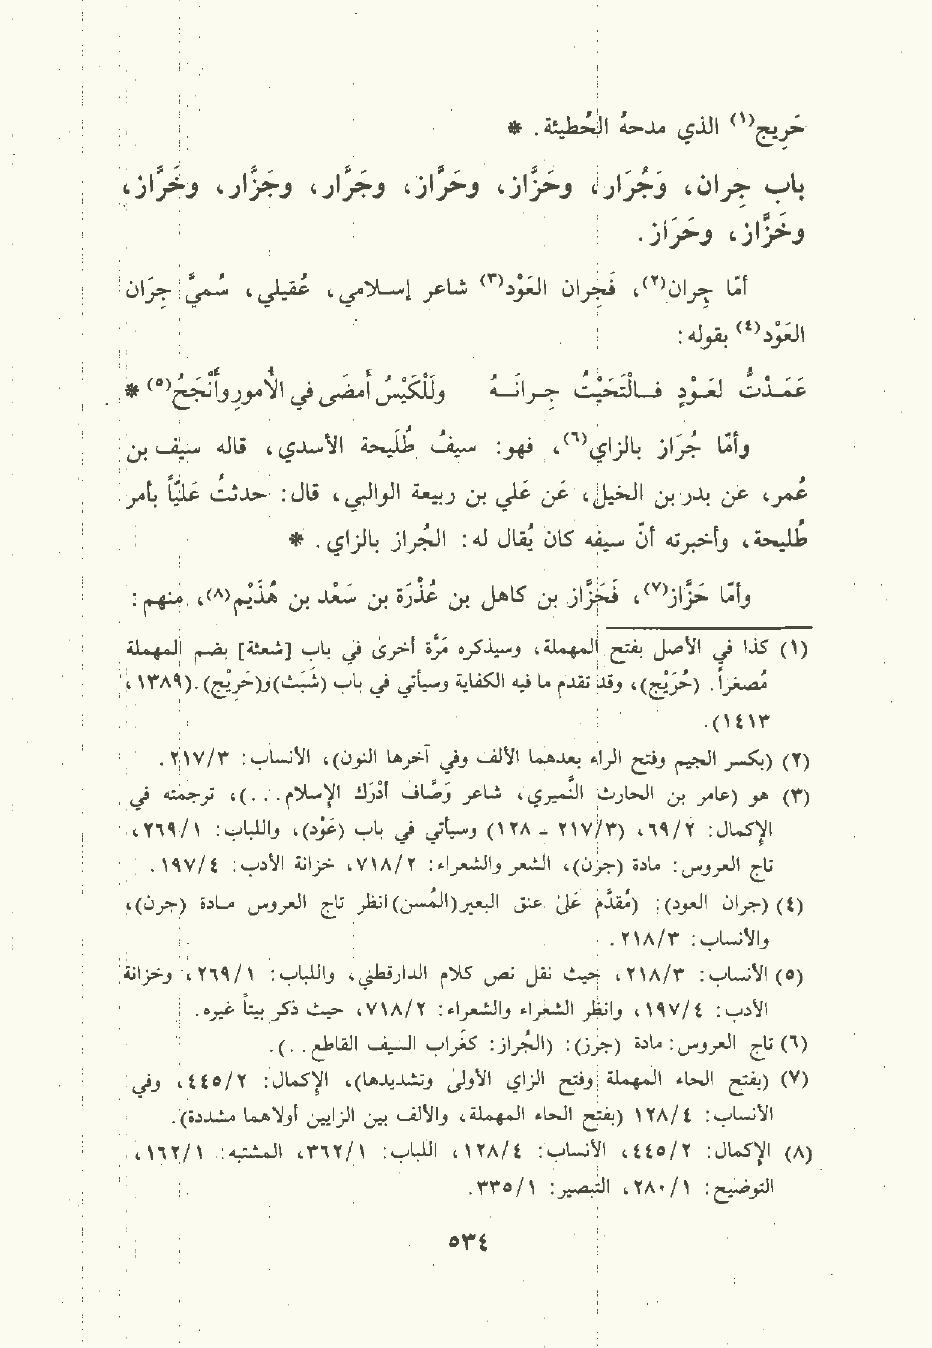 حَرِيج(١) الذي مدحهُ الحُطيئة. *
باب جِران، وَجُرَاز، وحَزَّاز، وحَرَّاز، وجَرَّار، وجَزَّار، وخَرَّاز،
وخَزَّاز، وحَرَاز.
أمّا جِران(٢)، فَجِران العَوْد(٣) شاعر إسلامي، عُقيلي، سُميَّ جِرَان
العَوْد(٤) بقوله:
عَمَدْتُ لعَوْدٍ فالْتَحَيْتُ جِرانَهُ ولَلْكَيْسُ أَمضَى في الأُمورِ وأَنْجَحُ(٥) *
وأمّا جُرَاز بالزاي(٦)، فهو: سيفُ طُلَيحة الأسدي، قاله سيف بن
عُمر، عن بدر بن الخيل، عَن عَلي بن ربيعة الوالبي، قال: حدثتُ عَليَّاً بأمر
طُليحة، وأخبرته أنّ سيفه كان يُقال له: الجُراز بالزاي. *
وأمّا حَزَّاز(٧)، فَحَزَّاز بن كاهل بن عُذْرَة بن سَعْد بن هُذَيْم(٨)، منهم:
(١) كذا في الأصل بفتح المهملة، وسيذكره مَرَّة أخرىٰ في باب [شعثة] بضم المهملة
مُصغراً. (حُرَيْج)، وقد تقدم ما فيه الكفاية وسيأتي في باب (شَبَث)و(حَرِيْج).(١٣٨٩،
١٤١٣).
(٢) (بكسر الجيم وفتح الراء بعدهما الألف وفي آخرها النون)، الأنساب: ٢١٧/٣.
(٣) هو (عامر بن الحارث النُّميري، شاعر وَصَّاف أدْرَك الإسلام...)، ترجمته في
الإكمال: ٦٩/٢، (٢١٧/٣ - ١٢٨) وسيأتي في باب (عَوْد)، واللباب: ٢٦٩/١،
تاج العروس: مادة (جرن)، الشعر والشعراء: ٧١٨/٢، خزانة الأدب: ١٩٧/٤.
(٤) (جران العود): (مُقدَّم عَلىٰ عنق البعير(المُسن)انظر تاج العروس مادة (جرن)،
والأنساب: ٢١٨/٣.
(٥) الأنساب: ٢١٨/٣، حيث نقل نص كلام الدارقطني، واللباب: ٢٦٩/١، وخزانة
الأدب: ١٩٧/٤، وانظر الشعراء والشعراء: ٧١٨/٢، حيث ذكر بيتاً غيره.
(٦) تاج العروس: مادة (جرز): (الجُراز: كغُراب السيف القاطع...).
(٧) (بفتح الحاء المهملة وفتح الزاي الأولىٰ وتشديدها)، الإكمال: ٤٤٥/٢، وفي
الأنساب: ١٢٨/٤ (بفتح الحاء المهملة، والألف بين الزايين أولاهما مشددة).
(٨) الإكمال: ٤٤٥/٢، الأنساب: ١٢٨/٤، اللباب: ٣٦٢/١، المشتبه: ١٦٢/١،
التوضيح: ٢٨٠/١، التبصير: ٣٣٥/١.
٥٣٤